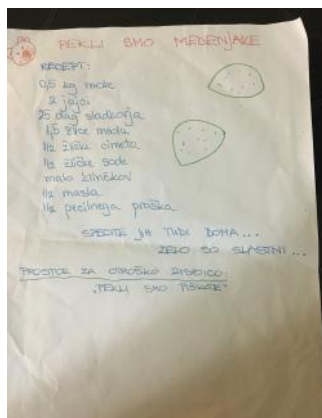 PEKLI SMO MEDENJAKE
RECEPT:
0,5 kg moke
2 jajci
25 dag sladkorja
1,5 žlice medu
1/2 žličke cimeta
1/2 žličke sode
malo klinčkov
1/2 masla
1/2 pecilnega praška
SPECITE JIH TUDI DOMA...
ZELO SO SLASTNI...
PROSTOR ZA OTROŠKO RISBICO:
"PEKLI SMO PIŠKOTE"